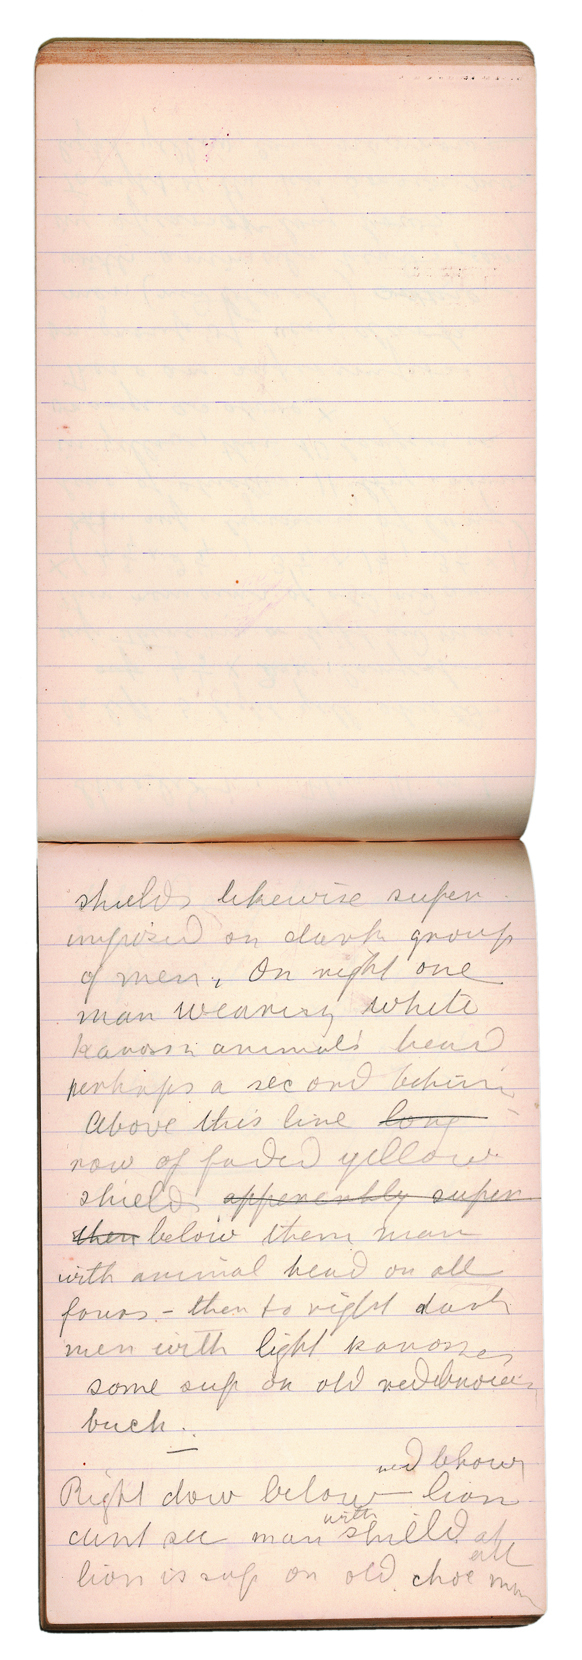 shields likewise super
imposed on dark group
of men, On right one
man wearing white
kaross animals' head
perhaps a second behind
Above this line long
row of faded yellow
shields apparently super
then below them man
with animal head on all
fours - then to right dark
men with light karosses
some sup on old redbrown
buck.
Right down below red brown lion
cant see man with shield at all
lion is sup on old choc man